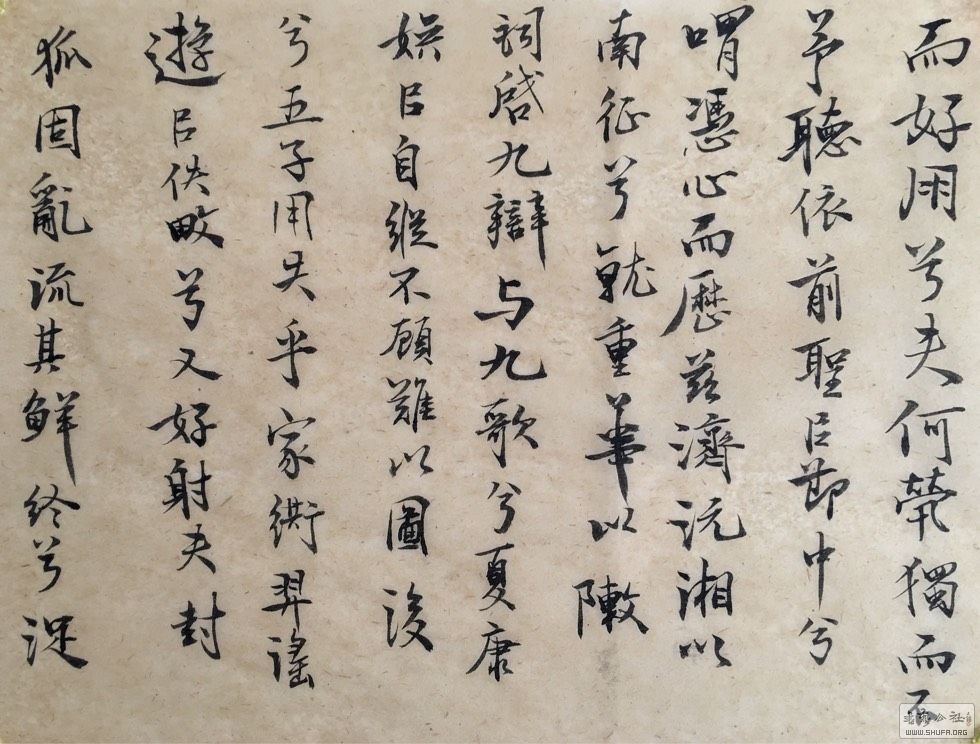 而好朋兮夫何煢獨而不
予聽依前聖㠯節中兮
喟憑心而歷茲濟沅湘以
南征兮就重華以敶
詞啓九辯与九歌兮夏康
娱㠯自縱不顧難以圖後
兮五子用失乎家衖羿滛
遊㠯佚畋兮又好射夫封
狐固亂流其鮮終兮浞
WWW.SHUFA.ORG